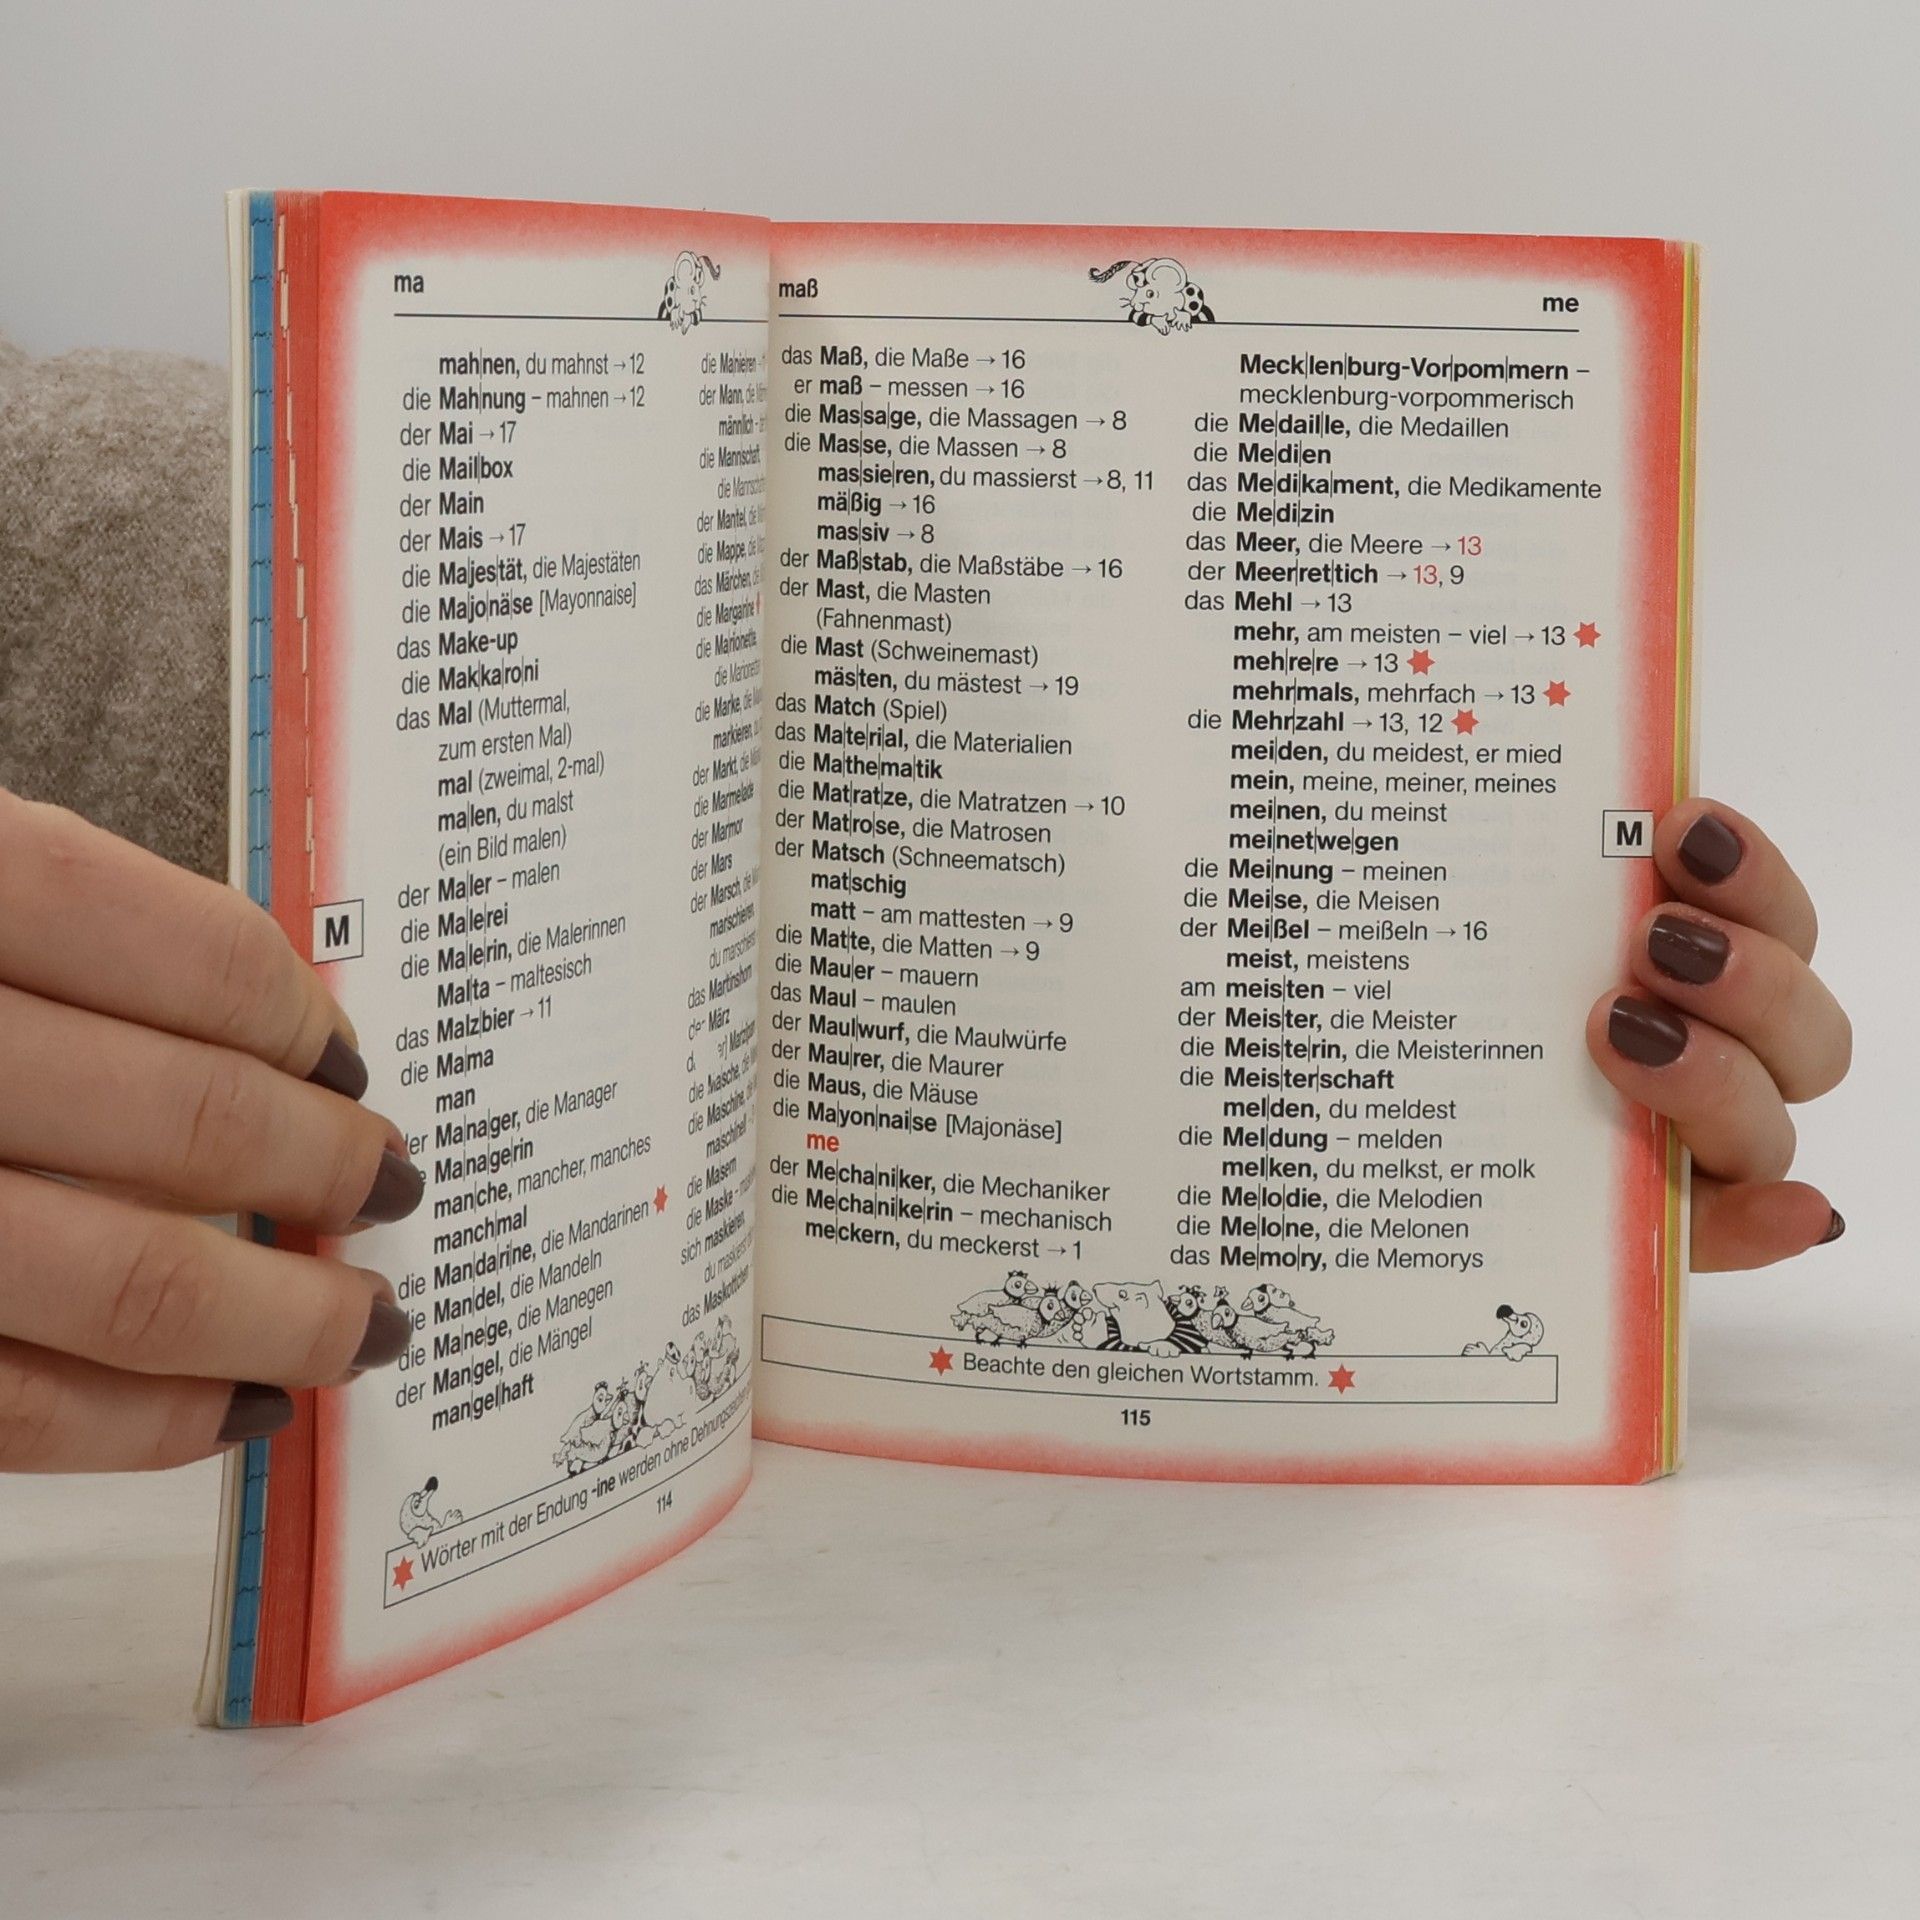 ma
mah|nen, du mahnst → 12
die Mah|nung – mahnen → 12
der Mai → 17
die Mail|box
der Main
der Mais → 17
die Ma|jes|tät, die Majestäten
die Ma|jo|nä|se [Mayonnaise]
das Make-up
die Mak|ka|ro|ni
das Mal (Muttermal,
zum ersten Mal)
mal (zweimal, 2-mal)
ma|len, du malst
(ein Bild malen)
der Ma|ler – malen
die Ma|le|rei
die Ma|le|rin, die Malerinnen
Mal|ta – maltesisch
das Malz|bier → 11
die Ma|ma
man
Ma|na|ger, die Manager
Ma|na|ge|rin
man|che, mancher, manches
manch|mal
die Man|da|ri|ne, die Mandarinen
Man|del, die Mandeln
die Ma|ne|ge, die Manegen
der Man|gel, die Mängel
man|gel|haft
die Manieren
der Mann, die
männlich
die Mannschaft,
die
der Mantel, die
die Mappe, die
das Märchen, die
die Margarine
die Marionette,
die Marionetten
die Marke, die
markieren,
der Markt, die
die Marmelade
der Marmor
der Mars
der Marsch, die
marschieren,
du
das Martinshorn
März
die
die Maschine, die
maschinell
die Masern
die Maske
sich maskieren,
du
das Maskottchen
M
Wörter mit der Endung -ine werden ohne Dehnungszeichen
114
maß
me
das Maß, die Maße → 16
er maß – messen → 16
die Mas|sa|ge, die Massagen → 8
die Mas|se, die Massen → 8
mas|sie|ren, du massierst → 8, 11
mä|ßig → 16
mas|siv → 8
der Maß|stab, die Maßstäbe → 16
der Mast, die Masten
(Fahnenmast)
die Mast (Schweinemast)
mäs|ten, du mästest → 19
das Match (Spiel)
das Ma|te|ri|al, die Materialien
die Ma|the|ma|tik
die Mat|rat|ze, die Matratzen → 10
der Mat|ro|se, die Matrosen
der Matsch (Schneematsch)
mat|schig
matt – am mattesten → 9
die Mat|te, die Matten → 9
die Mau|er – mauern
das Maul – maulen
der Maul|wurf, die Maulwürfe
der Mau|rer, die Maurer
die Maus, die Mäuse
die Ma|yon|nai|se [Majonäse]
me
der Me|cha|ni|ker, die Mechaniker
die Me|cha|ni|ke|rin – mechanisch
me|ckern, du meckerst → 1
Meck|len|burg-Vor|pom|mern –
mecklenburg-vorpommerisch
die Me|dail|le, die Medaillen
die Me|di|en
das Me|di|ka|ment, die Medikamente
die Me|di|zin
das Meer, die Meere → 13
der Meer|ret|tich → 13, 9
das Mehl → 13
mehr, am meisten – viel → 13
meh|re|re → 13
mehr|mals, mehrfach → 13
die Mehr|zahl → 13, 12
mei|den, du meidest, er mied
mein, meine, meiner, meines
mei|nen, du meinst
mei|net|we|gen
die Mei|nung – meinen
die Mei|se, die Meisen
der Mei|ßel – meißeln → 16
meist, meistens
am meis|ten – viel
der Meis|ter, die Meister
die Meis|te|rin, die Meisterinnen
die Meis|ter|schaft
mel|den, du meldest
die Mel|dung – melden
mel|ken, du melkst, er molk
die Me|lo|die, die Melodien
die Me|lo|ne, die Melonen
das Me|mo|ry, die Memorys
M
Beachte den gleichen Wortstamm.
115